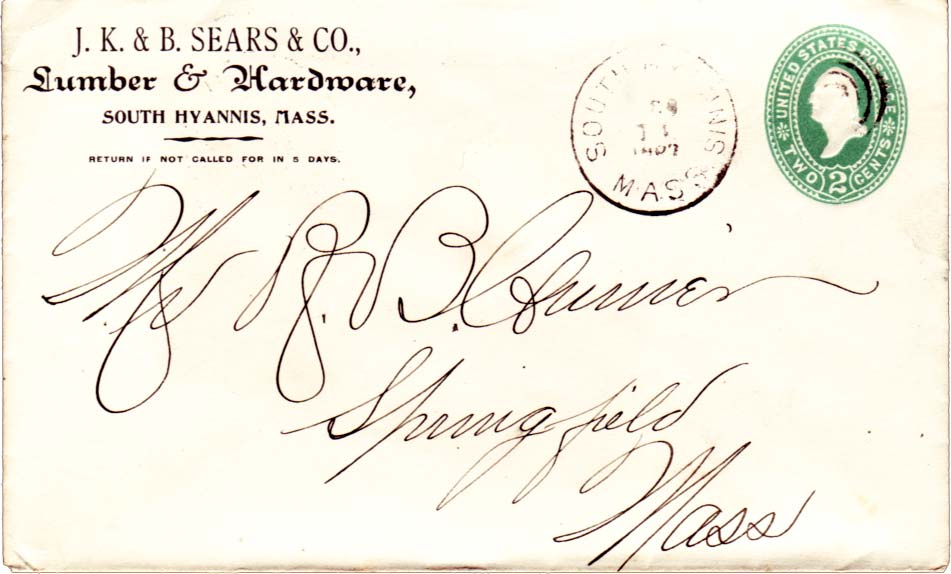 J. K. & B. SEARS & CO.,
Lumber & Hardware,
SOUTH HYANNIS, MASS.
RETURN IF NOT CALLED FOR IN 5 DAYS.
SOUTH HYANNIS
MASS
UNITED STATES POSTAGE
TWO 2 CENTS
Mr. J. B.
Springfield
Mass